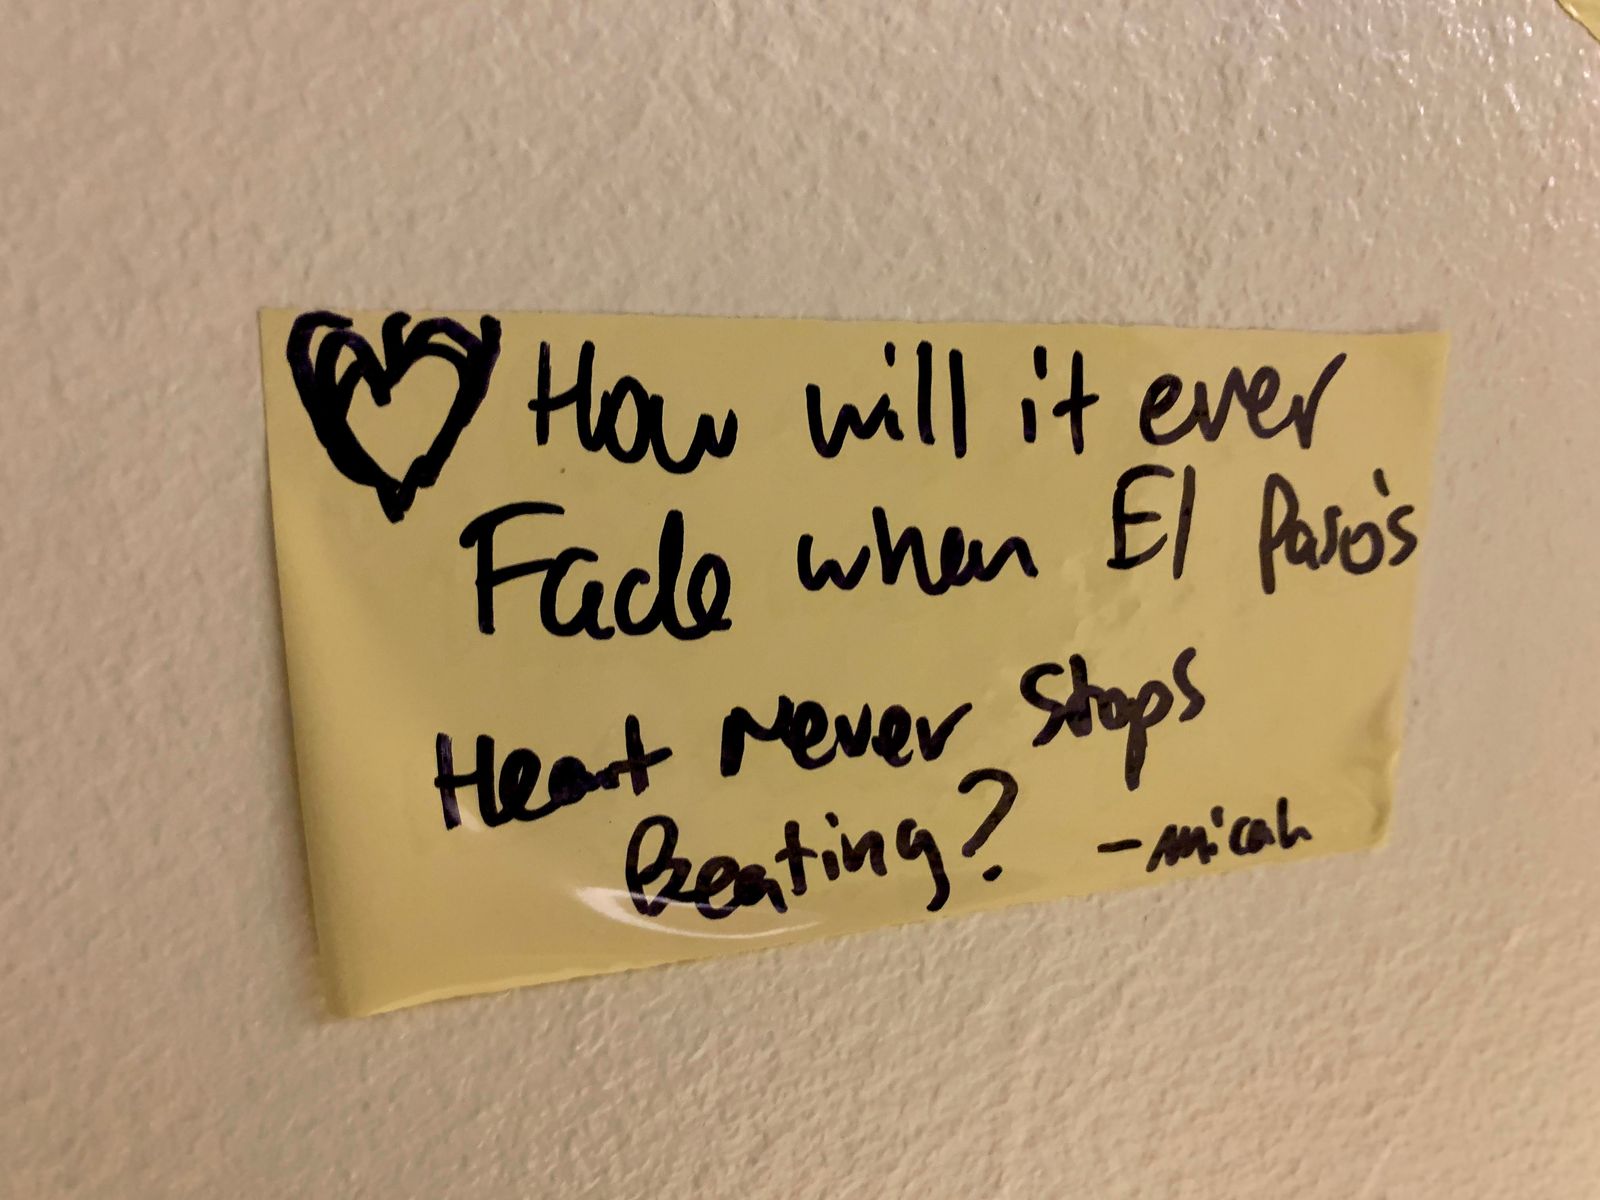 How will it ever
Fade when El Paso's
Heart Never Stops
Beating? -micah